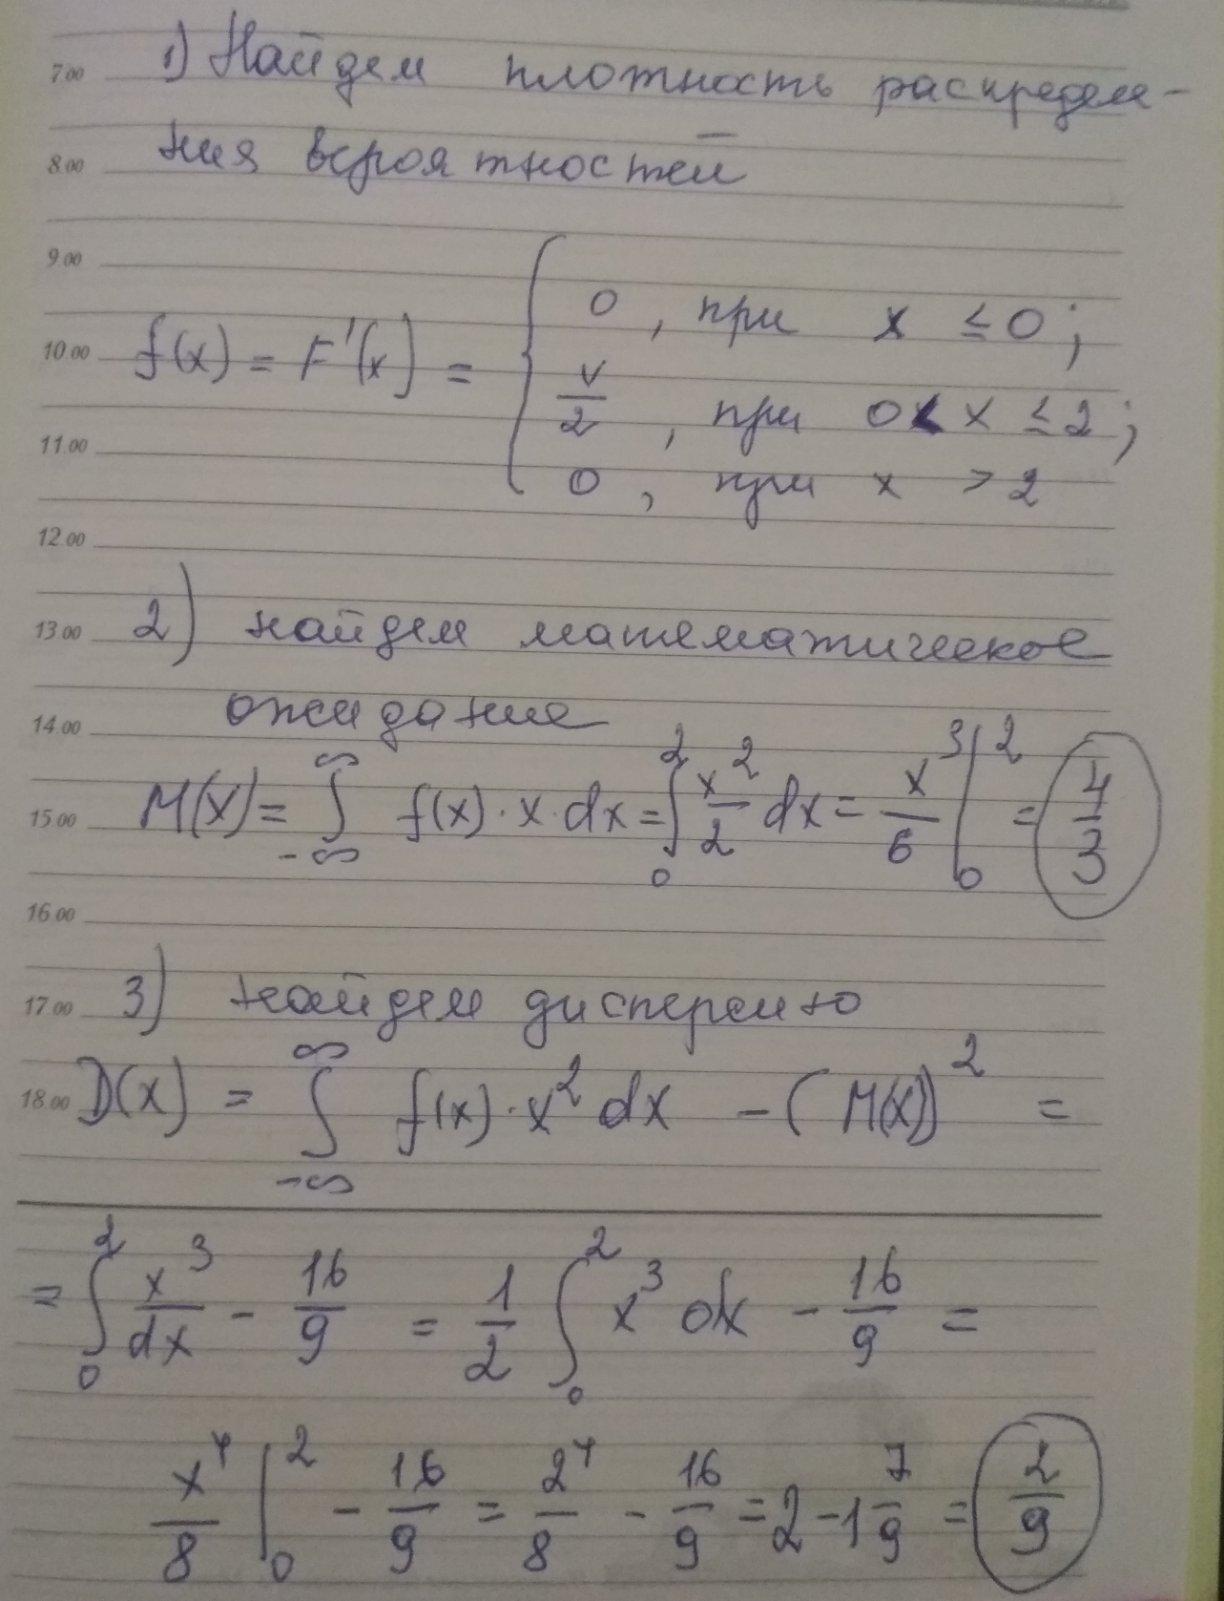 7.00 1) Найдем плотность распределе-
8.00 ния вероятностей
9.00
0, при x ≤ 0;
10.00 f(x) = F'(x) = { x/2, при 0 < x ≤ 2;
11.00
0, при x > 2
12.00
13.00 2) найдем математическое
14.00 ожидание
15.00 M(X) = ∫_{-∞}^{∞} f(x)·x·dx = ∫_0^2 x^2/2 dx = x^3/6 |_0^2 = 4/3
16.00
17.00 3) найдем дисперсию
18.00 D(x) = ∫_{-∞}^{∞} f(x)·x^2 dx - (M(X))^2 =
= ∫_0^2 x^3/dx - 16/9 = 1/2 ∫_0^2 x^3 dx - 16/9 =
x^4/8 |_0^2 - 16/9 = 2^4/8 - 16/9 = 2 - 1 7/9 = 2/9